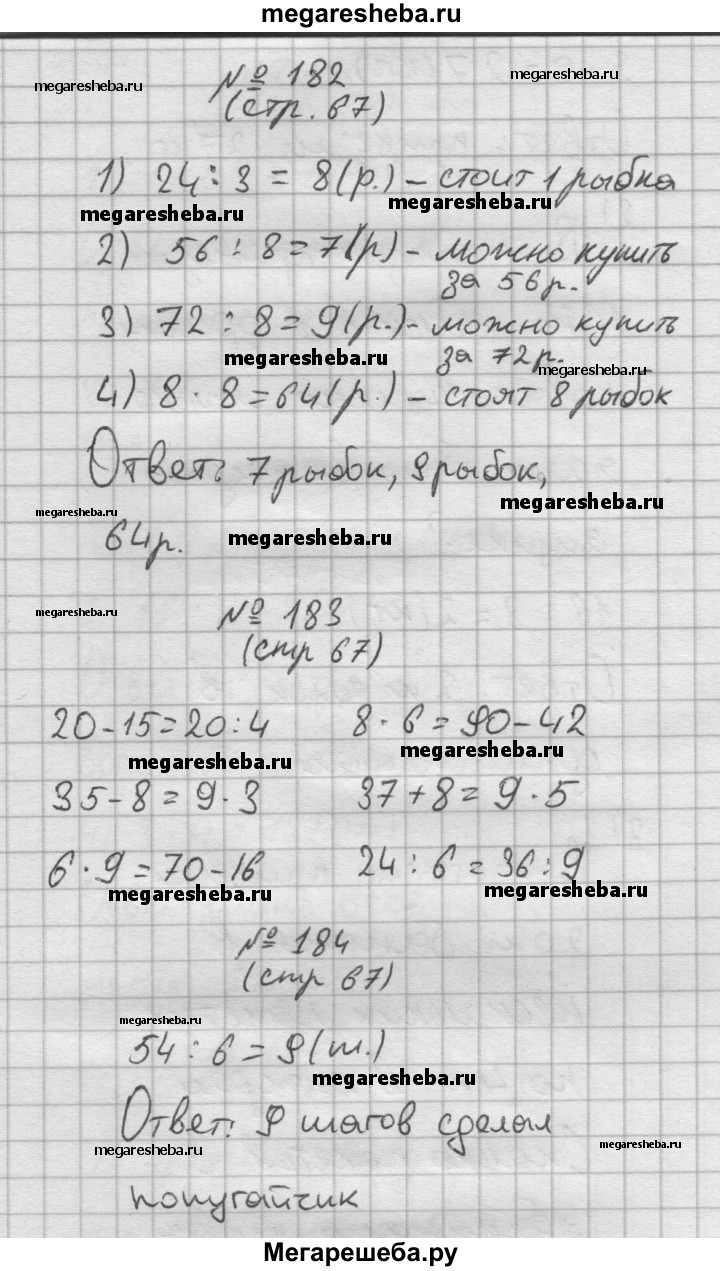 megaresheba.ru
№ 182
megaresheba.ru
megaresheba.ru
(стр. 67)
1) 24 : 3 = 8(р.) - стоит 1 рыбка
megaresheba.ru
megaresheba.ru
2) 56 : 8 = 7(р) - можно купить
за 56р.
3) 72 : 8 = 9(р.) - можно купить
megaresheba.ru
за 72р.
megaresheba.ru
4) 8 · 8 = 64(р.) - стоят 8 рыбок
Ответ: 7 рыбок, 9 рыбок,
megaresheba.ru
megaresheba.ru
64р.
megaresheba.ru
megaresheba.ru
№ 183
(стр 67)
20-15=20:4 8·6=90-42
megaresheba.ru
megaresheba.ru
35-8=9·3 37+8=9·5
6·9=70-16 24:6=36:9
megaresheba.ru
megaresheba.ru
№ 184
(стр 67)
megaresheba.ru
54:6=9(ш.)
megaresheba.ru
Ответ: 9 шагов сделал
megaresheba.ru
megaresheba.ru
попугайчик
Мегарешеба.ру